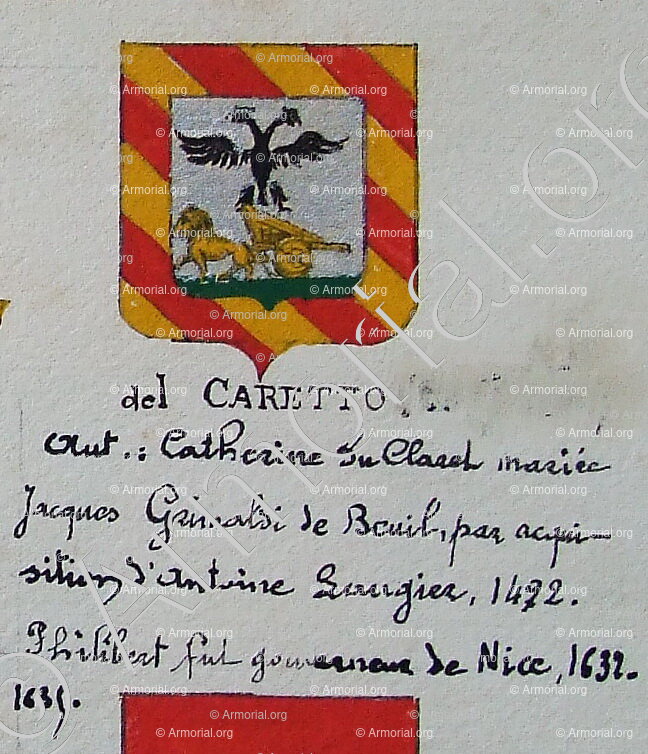 del CARETTO
Aut.: Catherine du Claret mariée
Jacques Grimaldi de Beuil, par acqui-
sition d'Antoine Laugier, 1472.
Philibert fut gouverneur de Nice, 1632.
1635.
© Armorial.org